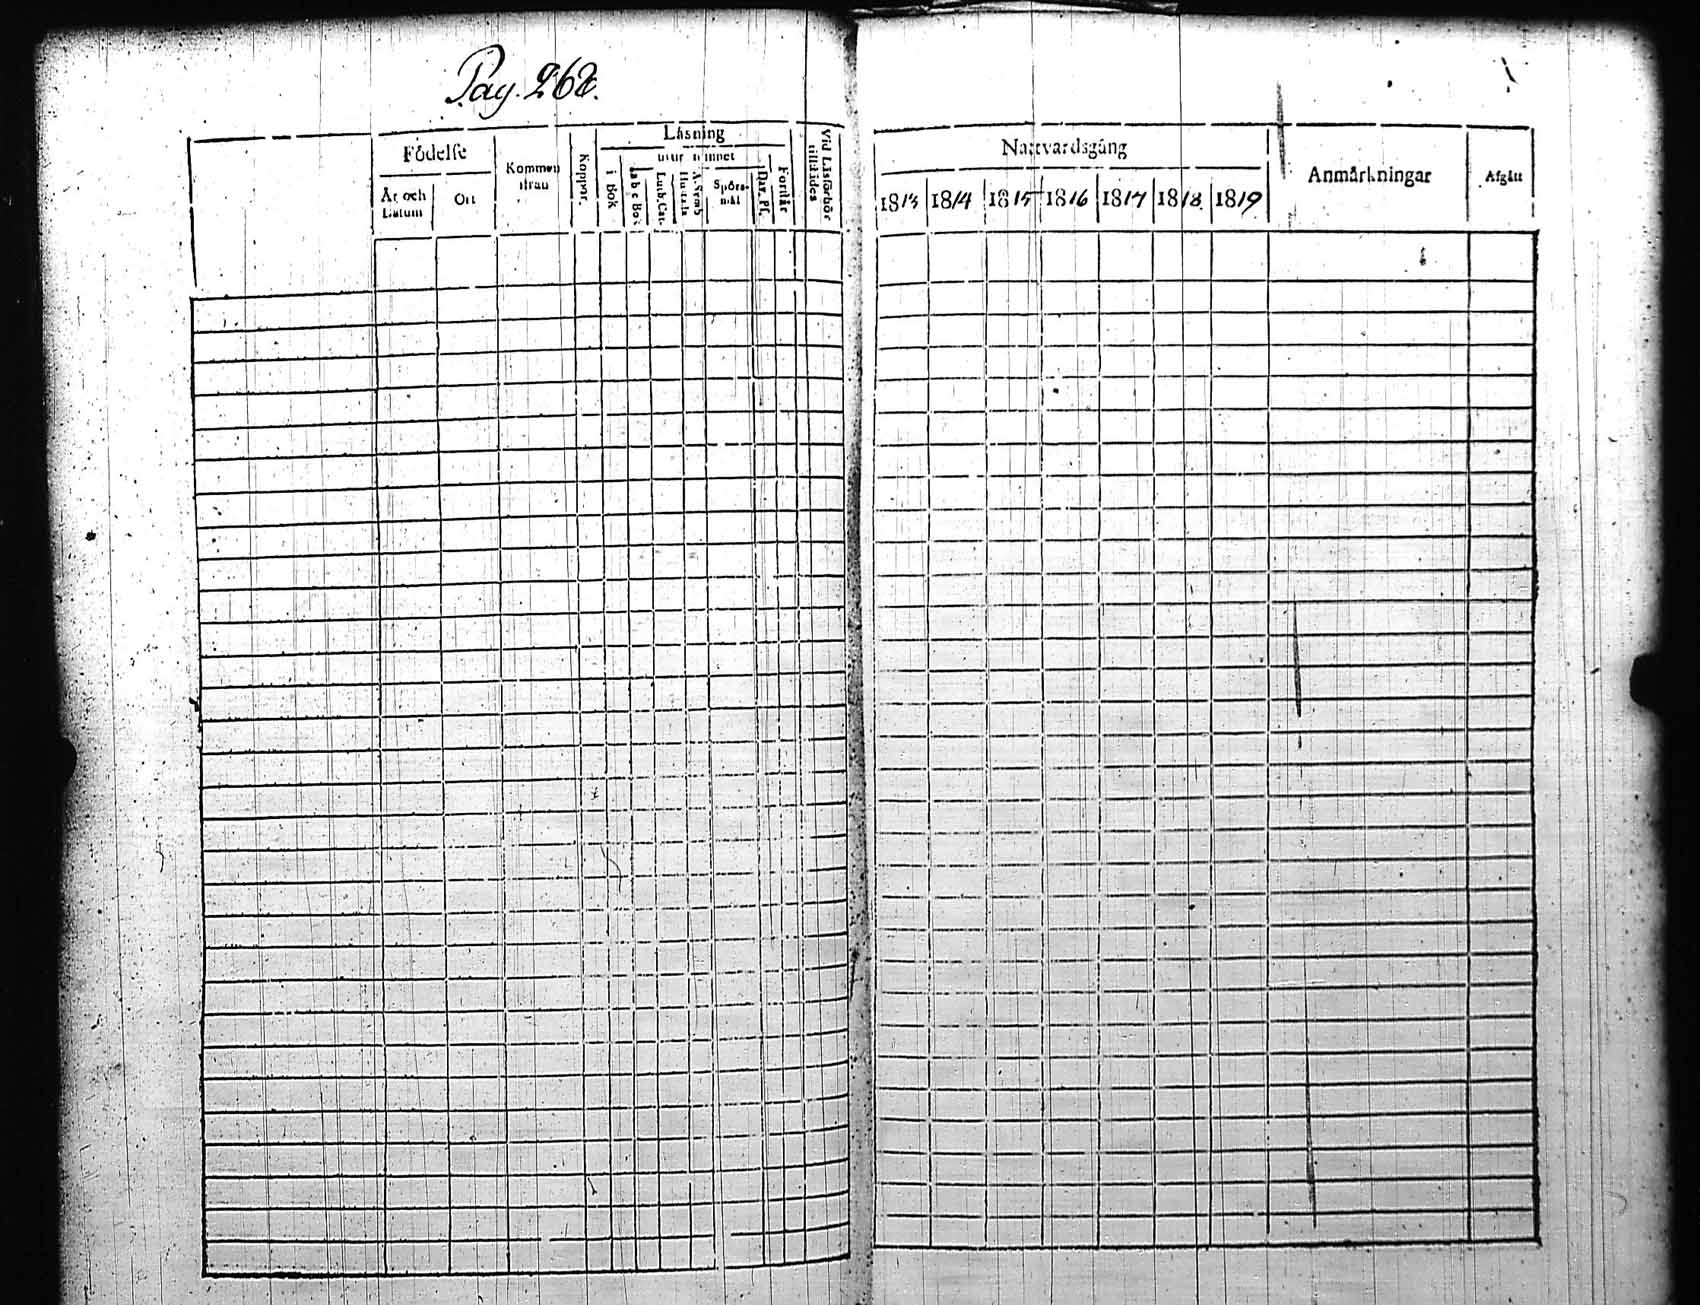 Pag. 262.
Födelse
År och Datum
Ort
Kommen ifrån
Koppor.
Läsning
utur minnet
i Bok
Luth. Cat.
Hustafla
A. Symb.
Spörsmål
Dav. Ps.
Förstår
Vid Läsförhör tillstädes
Nattvardsgång
1813 1814 1815 1816 1817 1818 1819
Anmärkningar
Afgått